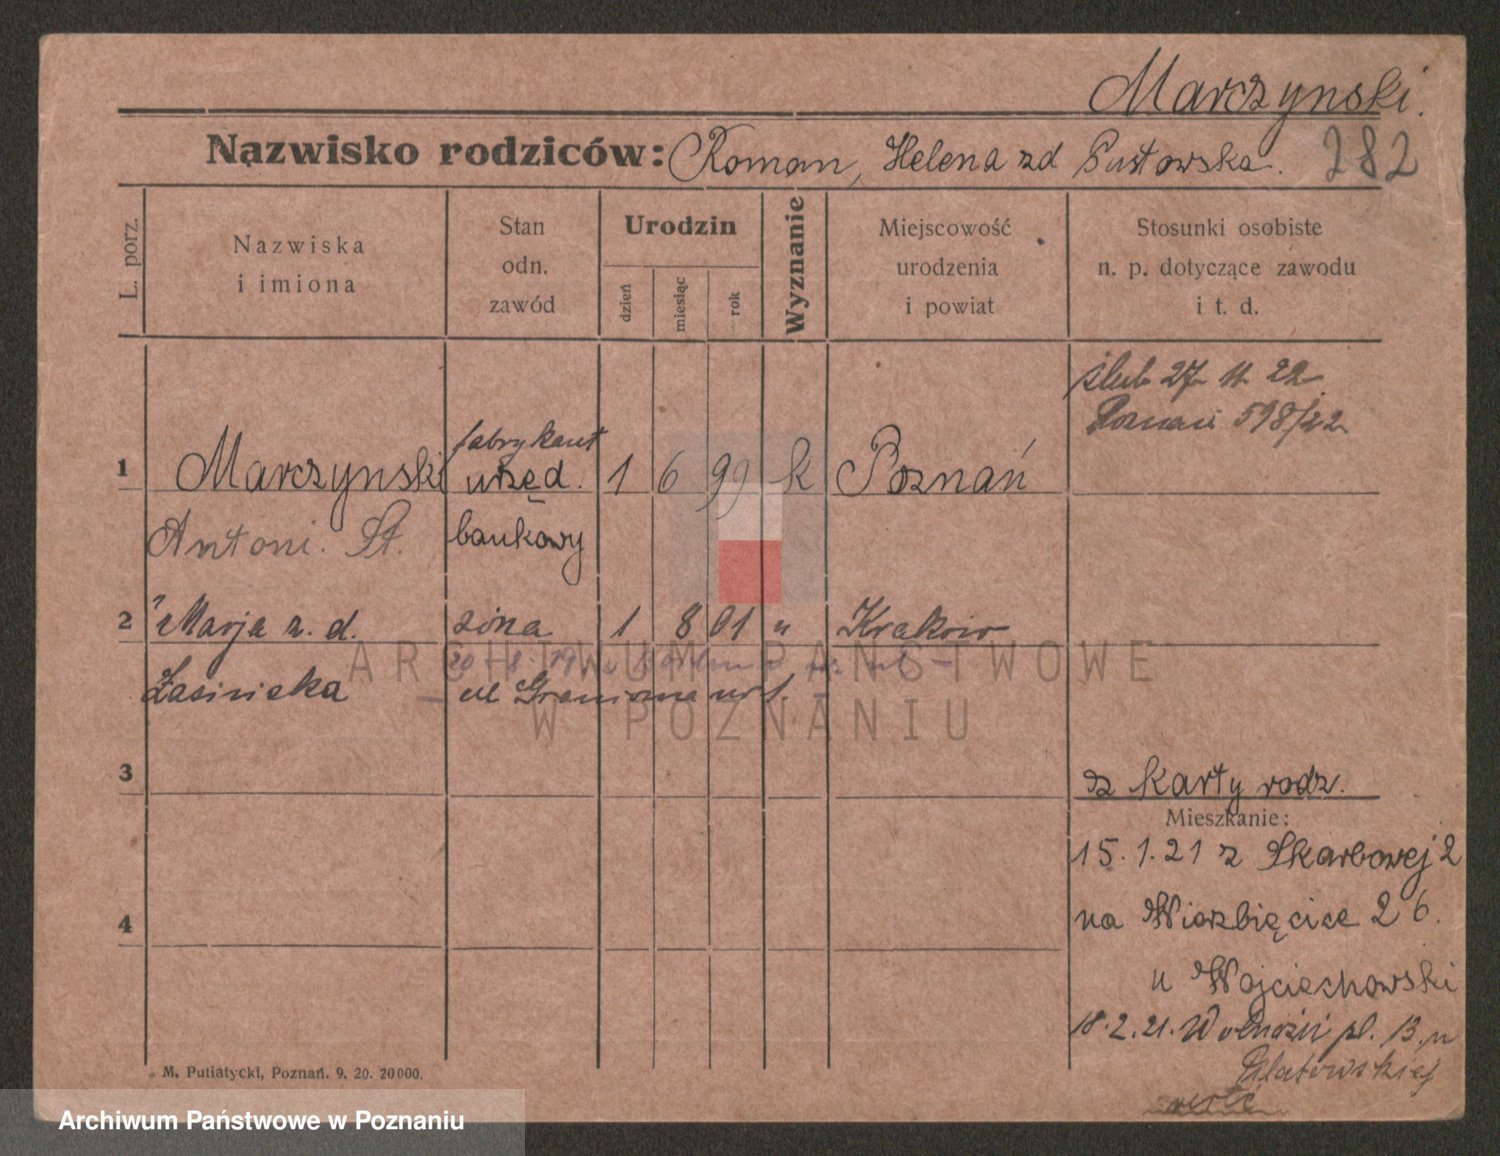 Marczynski.
Nazwisko rodziców: Roman, Helena zd Pustowska. 282
L. porz.
Nazwiska i imiona
Stan odn. zawód
Urodzin
dzień
miesiąc
rok
Wyznanie
Miejscowość urodzenia i powiat
Stosunki osobiste n. p. dotyczące zawodu i t. d.
ślub 27 11 22
Poznań 598/22
fabrykant
1 Marczynski urzęd. 1 6 99 k Poznań
Antoni. St. bankowy
2 " Marja z. d. żona 1 8 01 " Kraków
20 8
Łasińska ul Graniczna nr 1.
3
z karty rodz.
Mieszkanie:
15.1.21 z Skarbowej 2
4
na Wierzbięcice 26.
u Wojciechowski
18.2.21. Wolności pl. 13. u
M. Putiatycki, Poznań. 9. 20. 20000.
ARCHIWUM PAŃSTWOWE
W POZNANIU
Archiwum Państwowe w Poznaniu